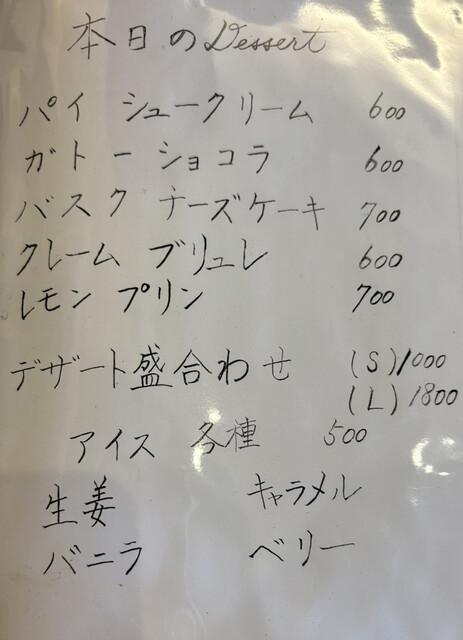 本日のDessert
パイ シュークリーム 600
ガトーショコラ 600
バスク チーズケーキ 700
クレーム ブリュレ 600
レモン プリン 700
デザート盛合わせ (S)1000
(L)1800
アイス 各種 500
生姜 キャラメル
バニラ ベリー